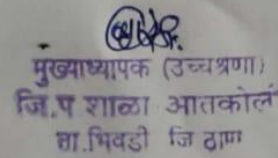 मुख्याध्यापक (उच्चश्रेणी)
जि.प शाळा आतकोलं
ता.भिवडी जि ठाणा